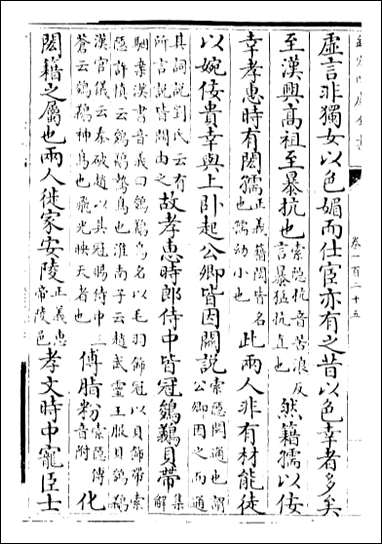 卷一百二十五
虚言非獨女以色媚而仕宦亦有之昔以色幸者多矣
至漢興髙祖至暴抗也索隱抗音苦浪反言暴猛抗直也然籍孺以佞
幸孝惠時有閎孺正義籍閎皆名也孺幼小也此兩人非有材能徒
以婉佞貴幸與上卧起公卿皆因關説索隱關通也謂公卿因之而通
其詞説劉氏云有所言説皆關由之故孝惠時郎侍中皆冠鵕鸃貝帶集解
駰案漢書音義曰鵕鸃鳥名以毛羽飾冠以貝飾帶索
隱許慎云鵕鸃鷩鳥也淮南子云趙武靈王服貝鵕鸃
漢官儀云秦破趙以其冠賜侍中三蒼云鵕鸃神鳥也飛光映天者也傅脂粉索隱傅音附化
閎籍之屬也兩人徙家安陵正義惠帝陵邑孝文時中寵臣士